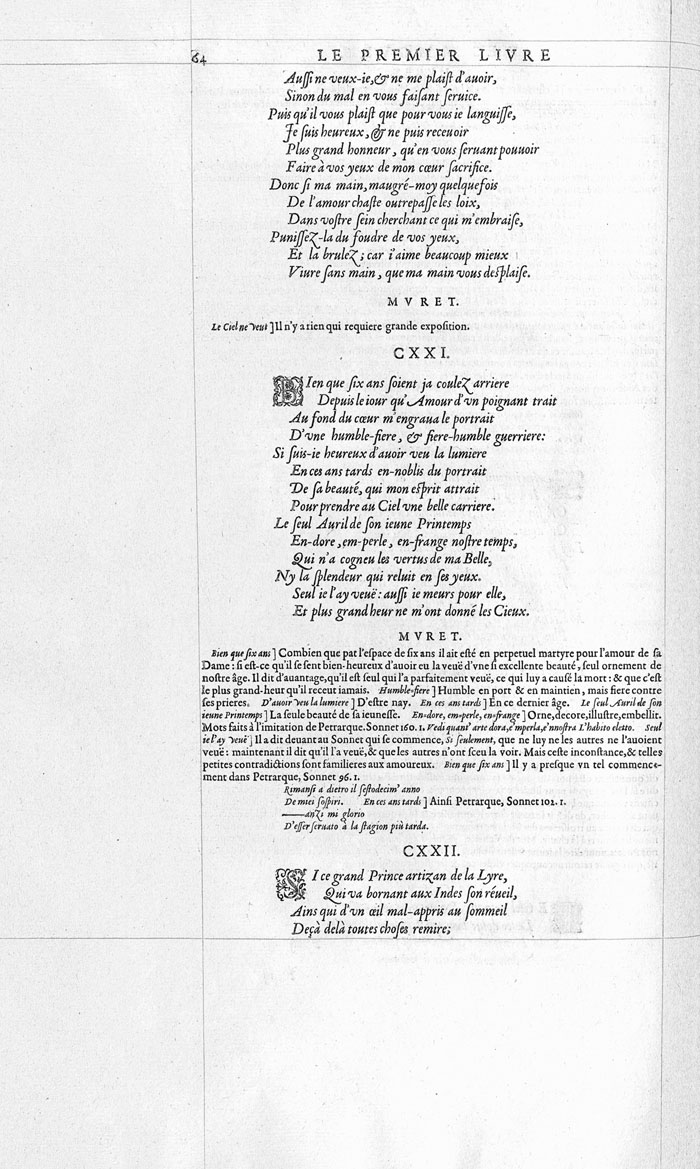 64 LE PREMIER LIVRE
Auſſi ne veux-ie, & ne me plaiſt d'auoir,
Sinon du mal en vous faiſant ſeruice.
Puis qu'il vous plaiſt que pour vous ie languiſſe,
Je ſuis heureux, & ne puis receuoir
Plus grand honneur, qu'en vous ſeruant pouuoir
Faire à vos yeux de mon cœur ſacrifice.
Donc ſi ma main, maugré-moy quelquefois
De l'amour chaſte outrepaſſe les loix,
Dans voſtre ſein cherchant ce qui m'embraiſe,
Puniſſez-la du foudre de vos yeux,
Et la brulez; car i'aime beaucoup mieux
Viure ſans main, que ma main vous deſplaiſe.
MVRET.
Le Ciel ne veut] Il n'y a rien qui requiere grande expoſition.
CXXI.
BIen que ſix ans ſoient ja coulez arriere
Depuis le iour qu'Amour d'vn poignant trait
Au fond du cœur m'engraua le portrait
D'vne humble-fiere, & fiere-humble guerriere:
Si ſuis-ie heureux d'auoir veu la lumiere
En ces ans tards en-noblis du portrait
De ſa beauté, qui mon eſprit attrait
Pour prendre au Ciel vne belle carriere.
Le ſeul Auril de ſon ieune Printemps
En-dore, em-perle, en-frange noſtre temps,
Qui n'a cogneu les vertus de ma Belle,
Ny la ſplendeur qui reluit en ſes yeux.
Seul ie l'ay veuë: auſſi ie meurs pour elle,
Et plus grand heur ne m'ont donné les Cieux.
MVRET.
Bien que ſix ans] Combien que par l'eſpace de ſix ans il ait eſté en perpetuel martyre pour l'amour de ſa
Dame: ſi eſt-ce qu'il ſe ſent bien-heureux d'auoir eu la veuë d'vne ſi excellente beauté, ſeul ornement de
noſtre âge. Il dit d'auantage, qu'il eſt ſeul qui l'a parfaitement veuë, ce qui luy a cauſé la mort: & que c'eſt
le plus grand-heur qu'il receut iamais. Humble-fiere] Humble en port & en maintien, mais fiere contre
ſes prieres. D'auoir veu la lumiere] D'eſtre nay. En ces ans tards] En ce dernier âge. Le ſeul Auril de ſon
ieune Printemps] La ſeule beauté de ſa ieuneſſe. En-dore, em-perle, en-frange] Orne, decore, illuſtre, embellit.
Mots faits à l'imitation de Petrarque. Sonnet 160. 1. Vedi quant' arte dora, e'mperla, e'nnoſtra L'habito eletto. Seul
ie l'ay veuë] Il a dit deuant au Sonnet qui ſe commence, Si ſeulement, que ne luy ne les autres ne l'auoient
veuë: maintenant il dit qu'il l'a veuë, & que les autres n'ont ſceu la voir. Mais ceſte inconſtance, & telles
petites contradictions ſont familieres aux amoureux. Bien que ſix ans] Il y a preſque vn tel commence-
ment dans Petrarque, Sonnet 96. 1.
Rimanſi a dietro il ſeſtodecim' anno
De miei ſoſpiri. En ces ans tards] Ainſi Petrarque, Sonnet 102. 1.
——anzi mi glorio
D'eſſer ſeruato à la ſtagion più tarda.
CXXII.
SI ce grand Prince artizan de la Lyre,
Qui va bornant aux Indes ſon réueil,
Ains qui d'vn œil mal-appris au ſommeil
Deçà delà toutes choſes remire;